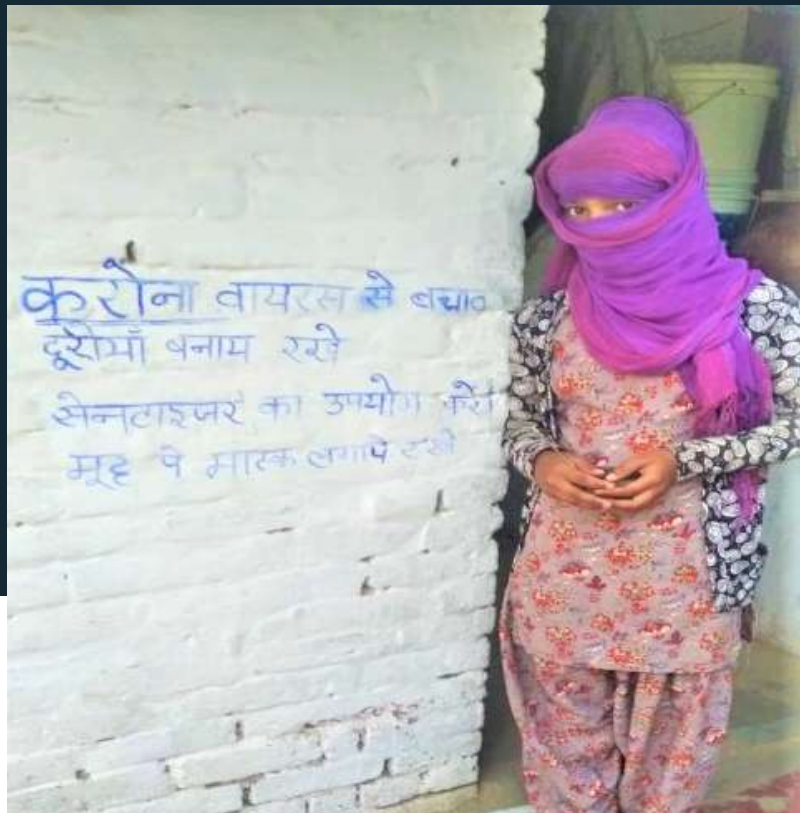 करोना वायरस से बचाव
दूरीयाँ बनाय रखे
सेनटाइजर का उपयोग करे
मूह पे मास्क लगाये रखे